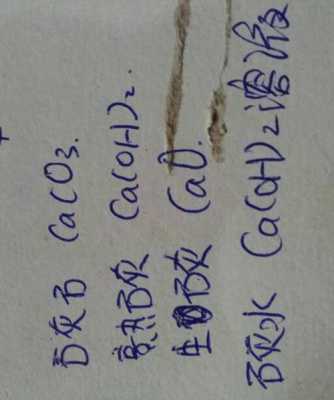 石灰石 CaCO3.
熟石灰 Ca(OH)2.
生石灰 CaO.
石灰水 Ca(OH)2溶液